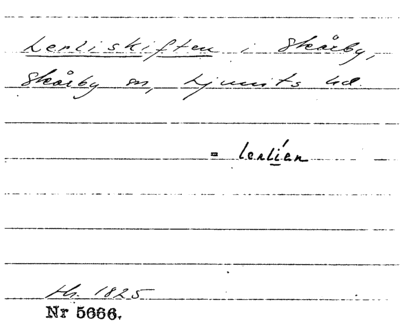 Lerliskiften i Skårby,
Skårby sn, Ljunits hd.
= lerlíen
Hs. 1825
Nr 5666.